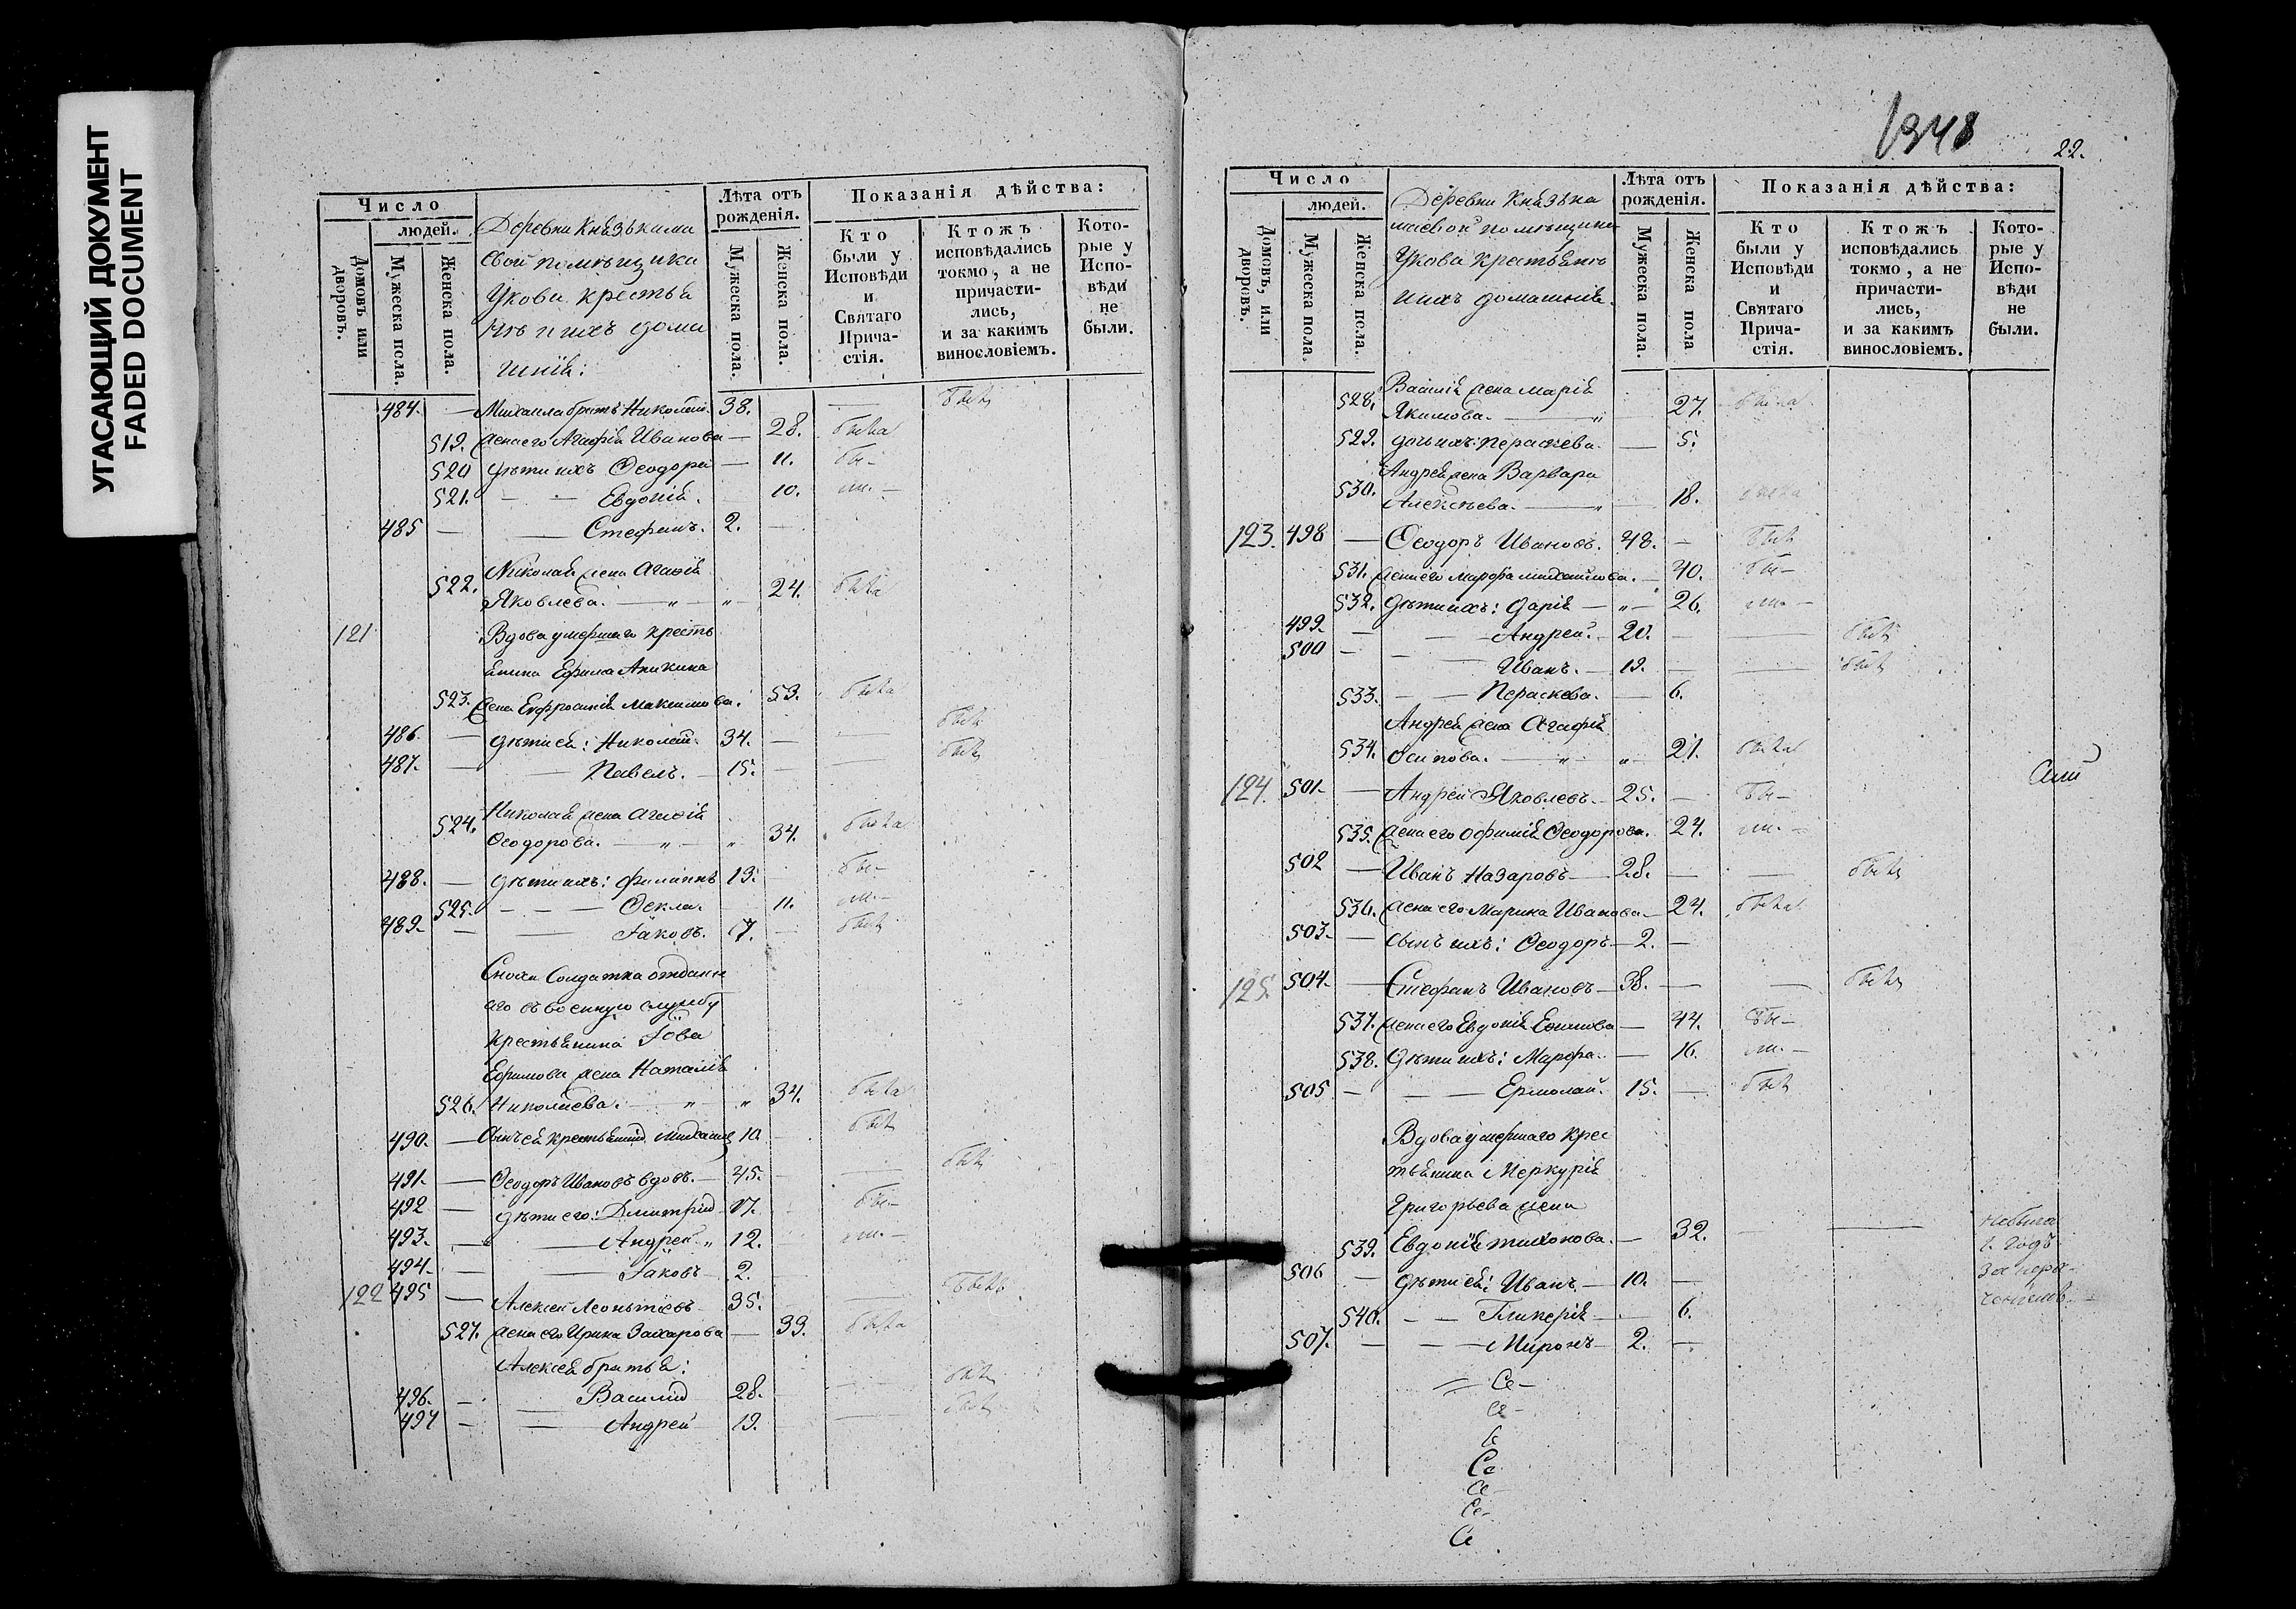 УГАСАЮЩИЙ ДОКУМЕНТ
FADED DOCUMENT
Число
людей.
Домовъ или дворовъ.
Мужеска пола.
Женска пола.
Деревни Князькама
евой помѣщика
Укова крестья
нъ и ихъ дома
шнія:
Лѣта отъ рожденія.
Мужеска пола.
Женска пола.
Показанія дѣйства:
Кто были у Исповѣди и Святаго Прича-стія.
Ктожъ исповѣдались токмо, а не причасти-лись, и за какимъ винословіемъ.
Кото-рые у Испо-вѣди не были.
484. — Михаила братъ Николай. 38. — былъ
519. жена его Агафія Иванова — 28. была
520 дѣти ихъ Ѳеодора — 11. бы-
521. — — Евдокія. 10. ли. —
485 — — Стефанъ. 2. —
Николая жена
522. Яковлева. — „ — „ — 24. была
121 Вдова умершаго кресть
янина Ефима Аникина
523. жена Евфросинія Максимова. 53. была
486. — дѣти ея: Николай. 34. — — былъ
487. — — Павелъ. — 15. — — былъ
Николая жена
524. Ѳеодорова. — „ — „ 34. была
488. — дѣти ихъ: Филиппъ 13. — бы-
525. — — — Ѳекла. 11. ли. —
489. — — Іаковъ. 7. — былъ
Сноха Солдатка отданн
аго въ военную службу
Крестьянина Іова
Ефимова жена Наталія
526. Николаева. — „ — „ 34. была
490. — Сынъ ея крестьянинъ Михаилъ 10 — былъ
491. — Ѳеодоръ Ивановъ вдовъ. — 45. — — былъ
492 — дѣти его: Димитрій 17. — бы-
493. — — Андрей. „ 12. ли. —
494. — — Іаковъ — 2.
122 495 — Алексей Леонтьевъ — 35. — былъ
527. жена его Ирина Захарова — 33. была
Алексея братья:
496. — — Василій 28. — былъ
497 — — Андрей 19. — былъ
1348
22.
Число
людей.
Домовъ, или дворовъ.
Мужеска пола.
Женска пола.
Деревни Князька
маевой помѣщика
Укова крестьянъ
и ихъ домашнія.
Лѣта отъ рожденія.
Мужеска пола.
Женска пола
Показанія дѣйства:
Кто были у Исповѣди и Святаго Прича-стія.
Ктожъ исповѣдались токмо, а не причасти-лись, и за какимъ винословіемъ.
Кото-рые у Испо-вѣди не были.
Василія жена Марія
528. Якимова. — „ 27. была
529. дочь ихъ: Параскева. — 5.
Андрея жена Варвара
530. Алексѣева. — „ — 18. была
123. 498 — Ѳеодоръ Ивановъ. 48. — былъ
531. жена его Марѳа Михайлова. — 40. бы-
532. дѣти ихъ: Дарія — „ — 26. ли. —
499. — — Андрей. — 20. — — былъ
500 — — Иванъ. — 19. — — былъ
533. — — Параскева. — 6.
Андрея жена Агафія
534. Осипова. — „ — „ 21. была
124. 501. — Андрей Яковлевъ. — 25. — бы-
535. жена его Офимія Ѳеодорова. 24. ли. —
502 — Иванъ Назаровъ — 28. — — былъ
536. жена его Марина Иванова — 24. была
503. — сынъ ихъ: Ѳеодоръ — 2. —
125. 504. — Стефанъ Ивановъ — 38. — — былъ
537. жена его Евдокія — 44. бы-
538. дѣти ихъ: Марѳа. — 16. ли. —
505 — — — Ермолай. 15. — былъ
Вдова умершаго крес
тьянина Меркурія
Григорьева жена
539. Евдокія Тихонова. — 32. — — небыла
1. годъ
506 — дѣти ея: Иванъ. — 10. —
за нера-
540. — — Гликерія — 6.
507. — — — Миронъ — 2. —
Се —
Се —
Се
Се
Се-
Се